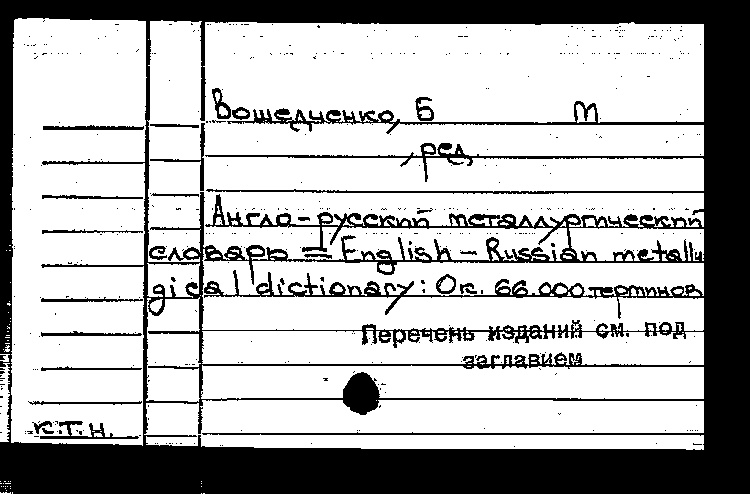 Вошедченко, Б М
, ред.
Англо-русский металлургический
словарь = English - Russian metallu
gical dictionary: Ок. 66.000 терминов
Перечень изданий см. под
заглавием
к.т.н.